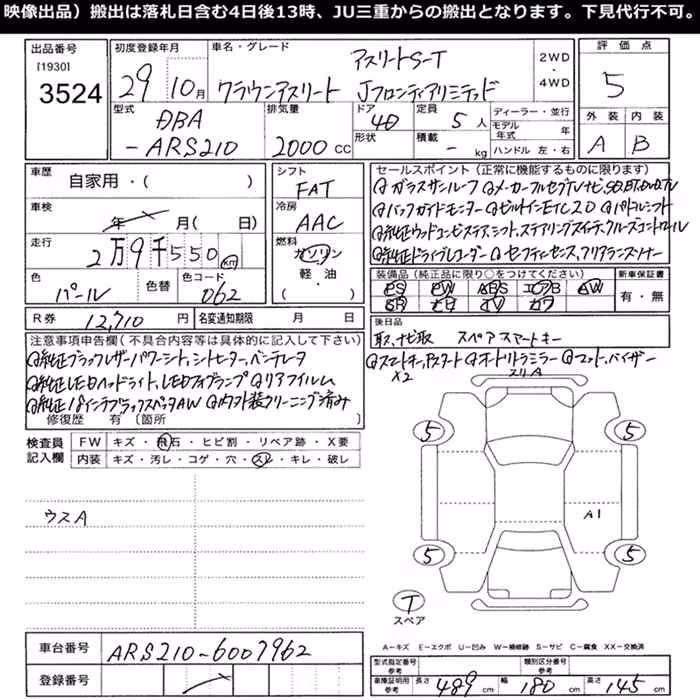 映像出品）搬出は落札日含む4日後13時、JU三重からの搬出となります。下見代行不可。
出品番号
[1930]
3524
初度登録年月
29 10月
車名・グレード
アスリートS-T
クラウンアスリート Jフロンティアリミテッド
2WD
・
4WD
評価点
5
外装 内装
A B
型式
DBA
-ARS210
排気量
2000 CC
ドア
4D
形状
定員
5人
積載
- kg
ディーラー・並行
モデル年式 年
ハンドル 左・右
車歴
自家用・( )
車検
年 月( 日)
走行
2万9千550 km
色
パール
色替
色コード
062
R券 12,710円
名変通知期限 月 日
シフト
FAT
冷房
AAC
燃料
ガソリン
軽油・
( )
セールスポイント（正常に機能するものに限ります）
◎ガラスサンルーフ ◎メーカーフルセグTVナビ,SD,BT,DVD,TV
◎バックガイドモニター ◎ビルトインETC2.0 ◎パドルシフト
◎純正ウッドコンビステア,シフト,ステアリングスイッチ,クルーズコントロール
◎純正ドライブレコーダー ◎セーフティセンス,クリアランスソナー
装備品（純正品に限り○をつけてください）
PS PW ABS エアB AW
SR ナビ TV カワ
新車保証書
有・無
後日品
取,ナビ取 スペアスマートキー
注意事項申告欄（不具合内容等は具体的に記入して下さい）
◎純正ブラックレザーパワーシート,シートヒーター,ベンチレータ
◎純正LEDヘッドライト,LEDフォグランプ ◎リアフィルム
◎純正18インチブラックスパッタAW ◎内外装クリーニング済み
修復歴 有〔箇所 〕
◎スマートキー,Pスタート ◎オートリトラミラー ◎マット,バイザー
X2
スリA
検査員
記入欄
FW キズ・飛石・ヒビ割・リペア跡・X要
内装 キズ・汚レ・コゲ・穴・スレ・キレ・破レ
ウスA
5
5
A1
5
5
T
スペア
A=キズ E=エクボ U=凹み W=補修跡 S=サビ C=腐食 XX=交換済
車台番号 ARS210-6007962
登録番号
型式指定番号
参考
類別区分番号
参考
車庫証明用
参考
長さ 489 cm
幅 180 cm
高さ 145 cm